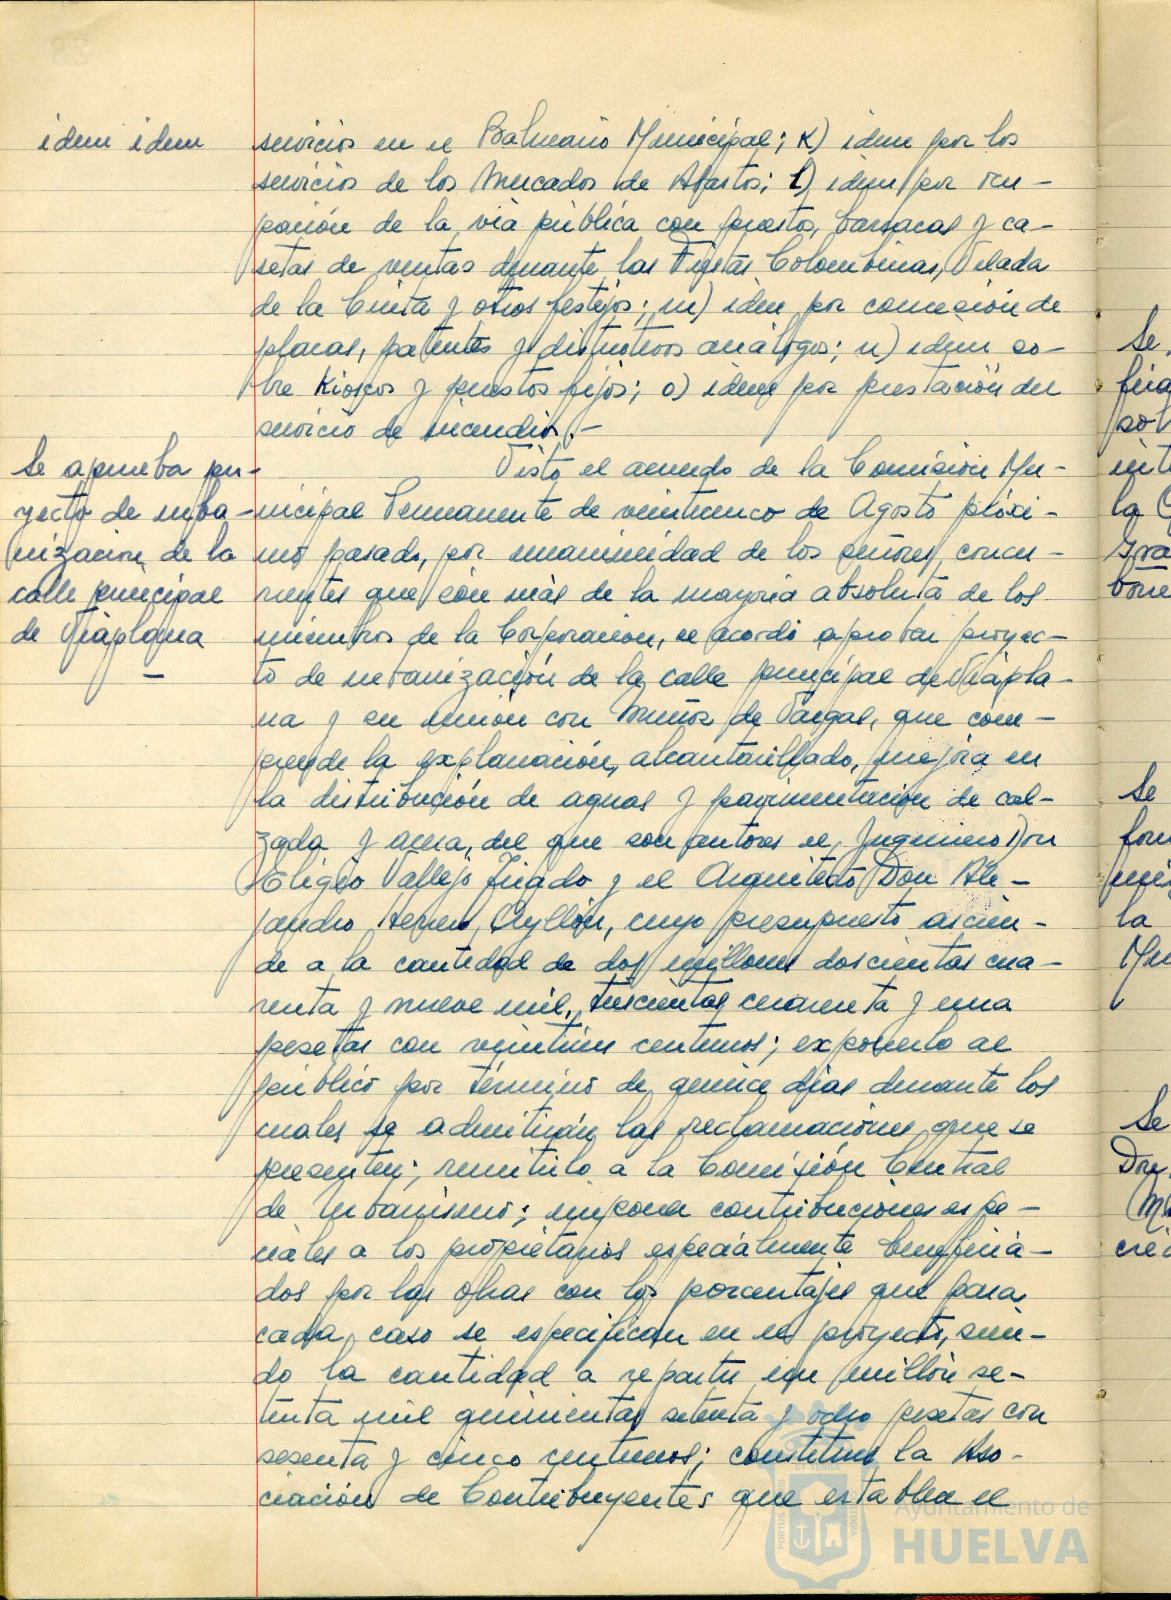 idem idem
servicios en el Balneario Municipal; K) idem por los
servicios de los Mercados de Abastos; L) idem por ocu-
pación de la via pública con puestos, barracas y ca-
setas de ventas durante las Fiestas Colombinas, Velada
de la Cinta y otros festejos; m) idem por concesión de
placas, patentes y distintivos análogos; n) idem so-
bre Kioscos y puestos fijos; o) idem por prestación del
servicio de incendios.-
Se aprueba pro-
yecto de urba-
nización de la
calle principal
de Viaplana
Visto el acuerdo de la Comisión Mu-
nicipal Permanente de veinticinco de Agosto próxi-
mo pasado, por unanimidad de los señores concu-
rrentes que son más de la mayoria absoluta de los
miembros de la Corporación, se acordó aprobar proyec-
to de urbanización de la calle principal de Viapla-
na y su unión con Muñoz de Vargas, que com-
prende la explanación, alcantarillado, mejora en
la distribución de aguas y pavimentación de cal-
zada y acera, del que son autores el Ingeniero Don
Eligio Vallejo Tirado y el Arquitecto Don Ale-
jandro Herrero Ayllón, cuyo presupuesto ascien-
de a la cantidad de dos millones doscientas cua-
renta y nueve mil, trescientas cuarenta y una
pesetas con veintiún centimos; exponerlo al
público por término de quince dias durante los
cuales se admitirán las reclamaciones que se
presenten; remitirlo a la Comisión Central
de Urbanismo; imponer contribuciones espe-
ciales a los propietarios especialmente beneficia-
dos por las obras con los porcentajes que para
cada caso se especifican en el proyecto, sien-
do la cantidad a repartir un millón se-
tenta mil quinientas setenta y ocho pesetas con
sesenta y cinco centimos; constituir la Aso-
ciación de Contribuyentes que establece el
Ayuntamiento de
HUELVA